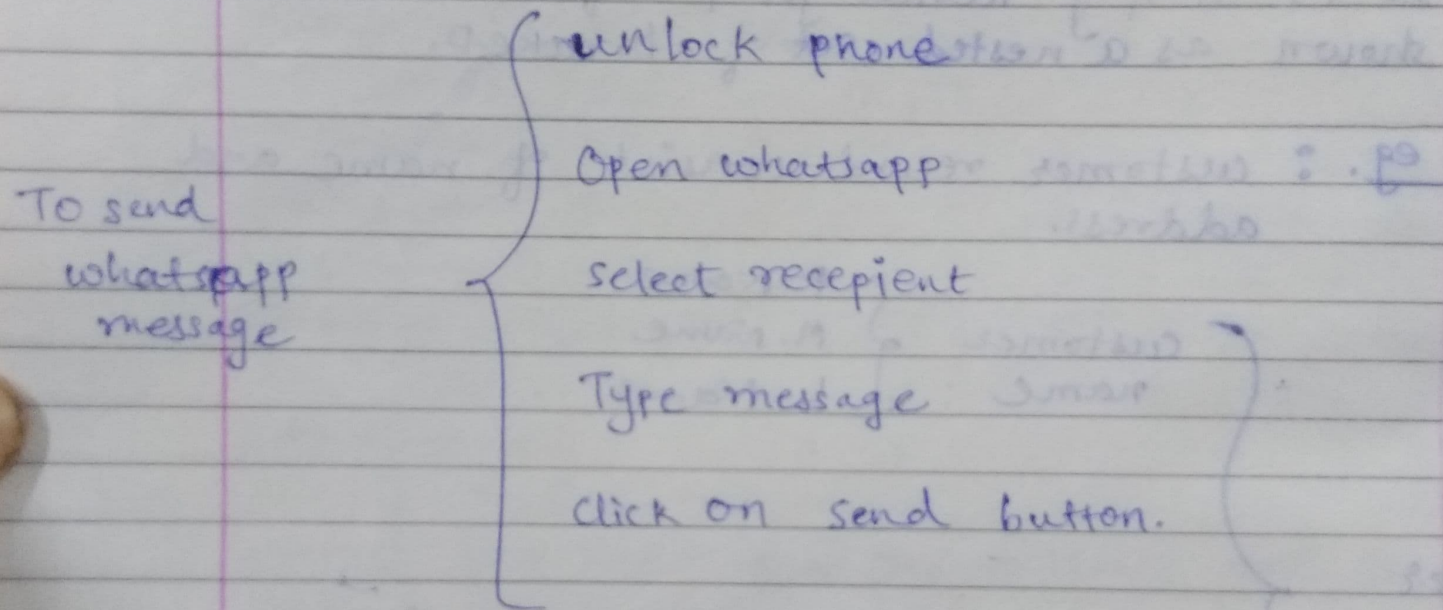 To send
whatsapp
message
unlock phone
Open whatsapp
select recepient
Type message
click on send button.